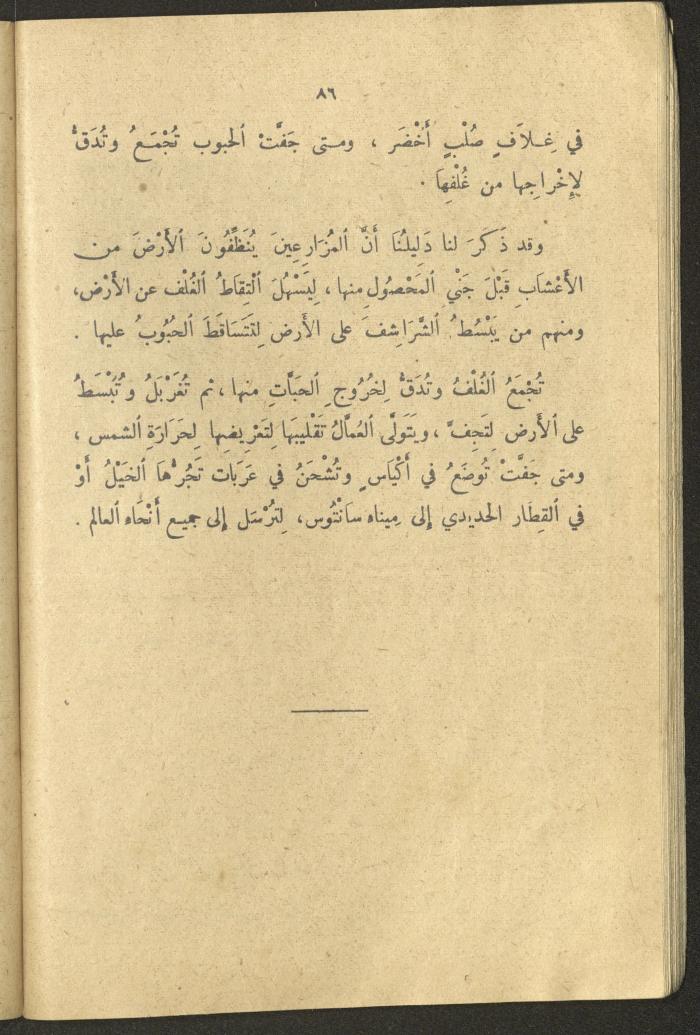 ٨٦
في غِلاَفٍ صُلْبٍ أَخْضَر ، ومتى جَفَّتْ ٱلحبوب تُجْمَعُ وتُدَقُّ
لإِخْراجِها من غُلْفِها .
وقد ذَكَرَ لنا دَلِيلُنَا أَنَّ ٱلمُزَارِعِينَ يُنَظِّفُونَ ٱلأَرْضَ من
الأَعْشَابِ قَبْلَ جَنْيِ ٱلمَحْصُولِ منها ، لِيَسْهُلَ ٱلْتِقَاطُ ٱلغُلْف عن الأَرْض ،
ومنهم من يَبْسُطُ ٱلشَّرَاشِفَ على الأَرض لِتَتَسَاقَطَ ٱلحُبُوبُ عليها .
تُجْمَعُ ٱلغُلْفُ وتُدَقُّ لِخُرُوجِ ٱلحَبَّاتِ منها ، ثم تُغَرْبَلُ وتُبْسَطُ
على ٱلأَرض لِتَجِفَّ ، ويَتَوَلَّى ٱلعُمَّالُ تَقْلِيبَهَا لِتَعْرِيضِها لِحَرَارَةِ ٱلشمس ،
ومتى جَفَّتْ تُوضَعُ في أَكْيَاسٍ وتُشْحَنُ في عَرَبَات تَجُرُّهَا ٱلخَيْلُ أَوْ
في ٱلقِطَار الحديدي إلى مِيناء سَانْتُوس ، لِتُرْسَل إلى جميع أَنْحَاء ٱلعالم .